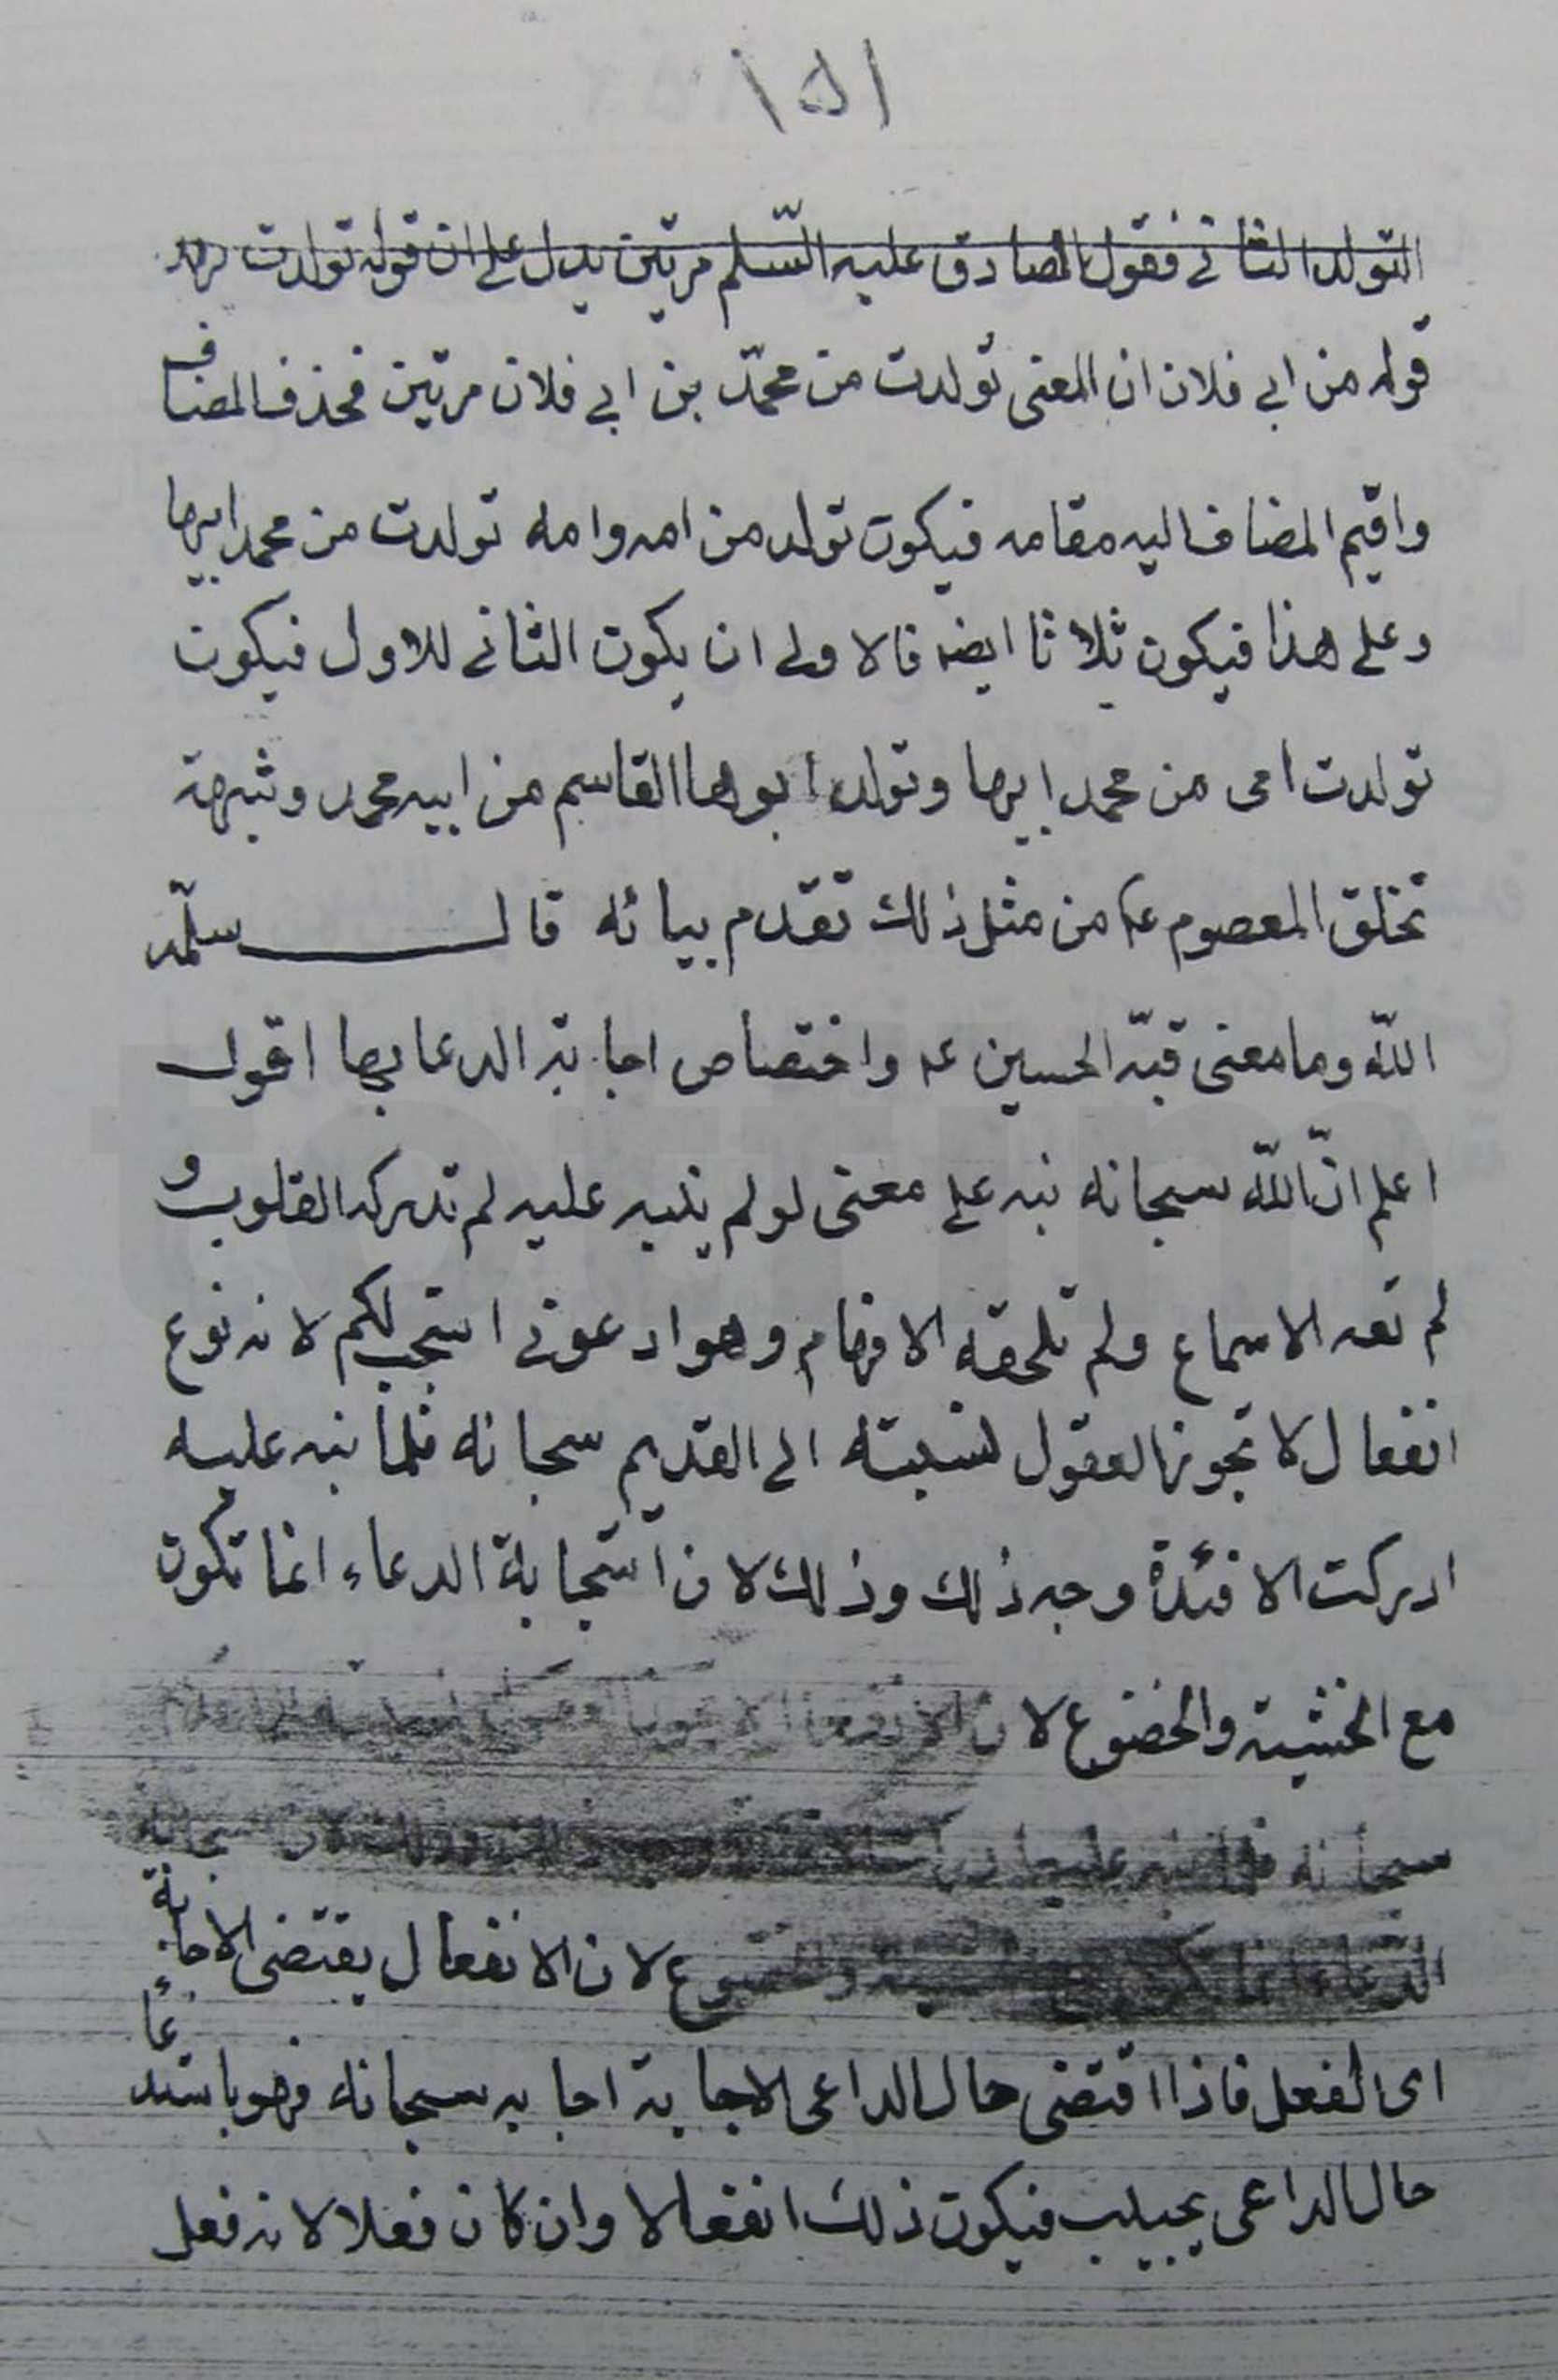 ١٥١
التولد الثاني فقول الصادق عليه السّلم مرتين يدل على ان قوله تولدت
قوله من ابي فلان ان المعنى تولدت من محمّد بن ابي فلان مرتين فحذف المضاف
واقيم المضاف اليه مقامه فيكون تولد من امه وامه تولدت من محمد ابيها
وعلى هذا فيكون ثلاثا ايضه فالاولى ان يكون الثاني للاول فيكون
تولدت امى من محمد ابيها وتولد ابوها القاسم من ابيه محمد وشبهة
تخلق المعصوم ع من مثل ذلك تقدم بيانه قال سلّمه
اللّه وما معنى قبّة الحسين ع واختصاص اجابة الدعا بها اقول
اعلم انّ اللّه سبحانه نبه على معنى لو لم ينبه عليه لم تدركه القلوب و
لم تعه الاسماع ولم تلحقه الافهام وهو ادعونى استجب لكم لانه نوع
انفعال لا تجوز العقول نسبته الى القديم سبحانه فلما نبه عليه
ادركت الافئدة وجه ذلك وذلك لان استجابة الدعاء انما تكون
مع الخشية والخضوع لان
سبحانه فلما نبه عليه
الدعاء انما لان الانفعال يقتضى الاجابة
اى الفعل فاذا اقتضى حال الداعى الاجابة اجابه سبحانه فهو باستدعاء
حال الداعى يجيب فيكون ذلك انفعالا وان كان فعلا لانه فعل